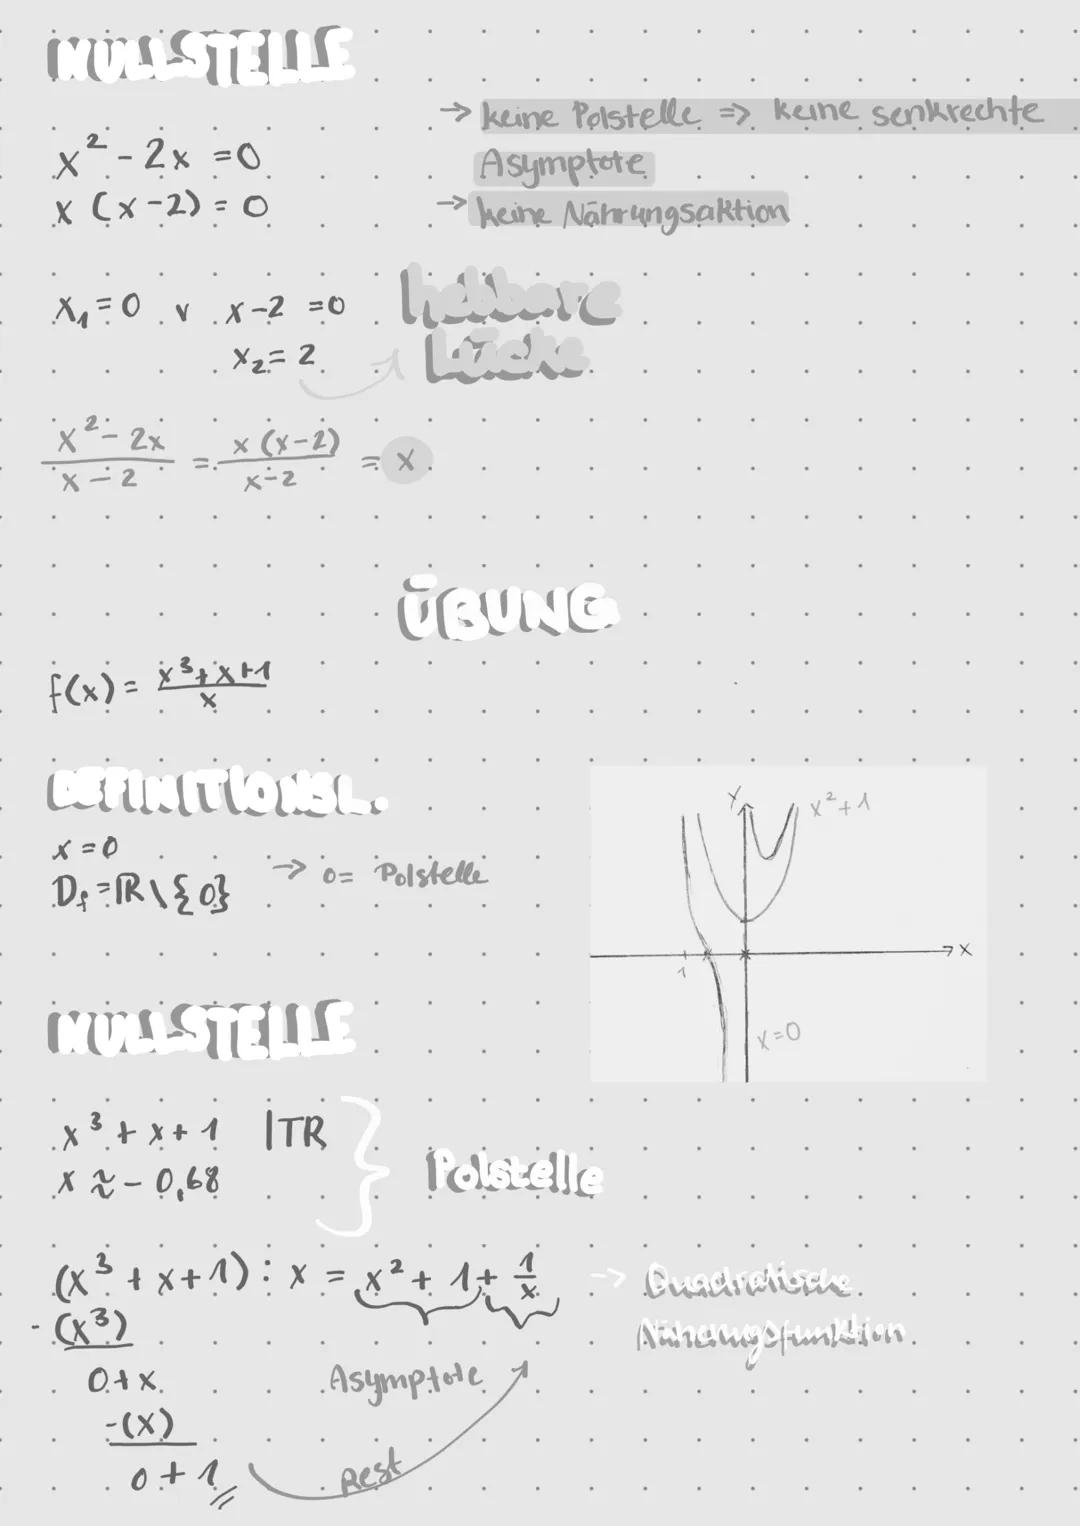 NULLSTELLE
→ keine Polstelle => keine senkrechte
Asymptote
→ keine Nährungsaktion
x² - 2x = 0
x (x-2) = 0
x₁ = 0 v x-2 = 0
x₂ = 2
hebbare
Lücke
x² - 2x / x - 2 = x (x-2) / x-2 = x
ÜBUNG
f(x) = x³+x+1 / x
DEFINITIONSL.
x = 0
D_f = ℝ \ {0} → 0 = Polstelle
y
x²+1
x
1
x=0
NULLSTELLE
x³ + x + 1 | TR
x ≈ - 0,68
Polstelle
(x³ + x + 1) : x = x² + 1 + 1/x → Quadratische
Näherungsfunktion
- (x³)
0 + x
Asymptote
-(x)
0 + 1
Rest